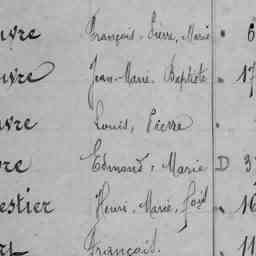 uvre François, Pierre, Marie " 6
uvre Jean-Marie, Baptiste " 17
uvre Louis, Pierre "
vre Edmond, Marie D 3
estier Henri, Marie, 16
François. 11